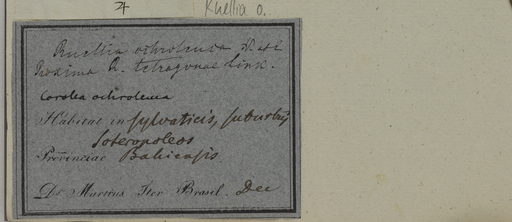 Ruellia o.
Ruellia ochroleuca
Proxima R. tetragonae Link.
Corolla ochroleuca
Habitat in sylvaticis, suburbiis
Soteropoleos
Provinciae Bahiensis
Dr Martius Iter Brasil. Dec